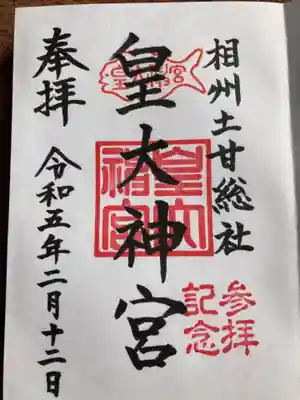 相州土甘総社
参拝
記念
皇大神宮
皇大神宮
奉拝
令和五年二月十二日